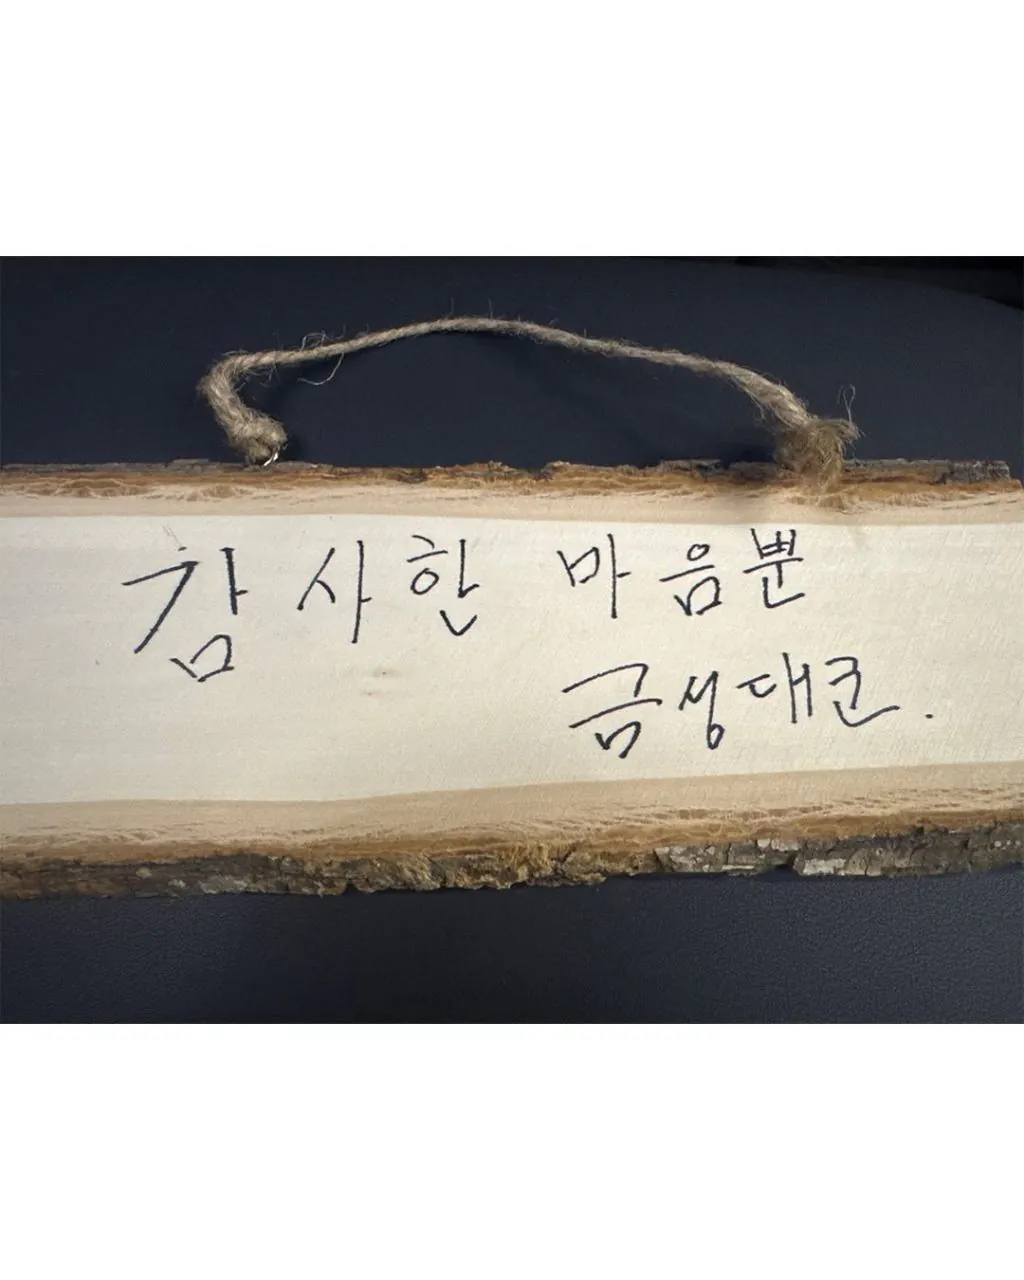 감사한 마음뿐
금성대코.